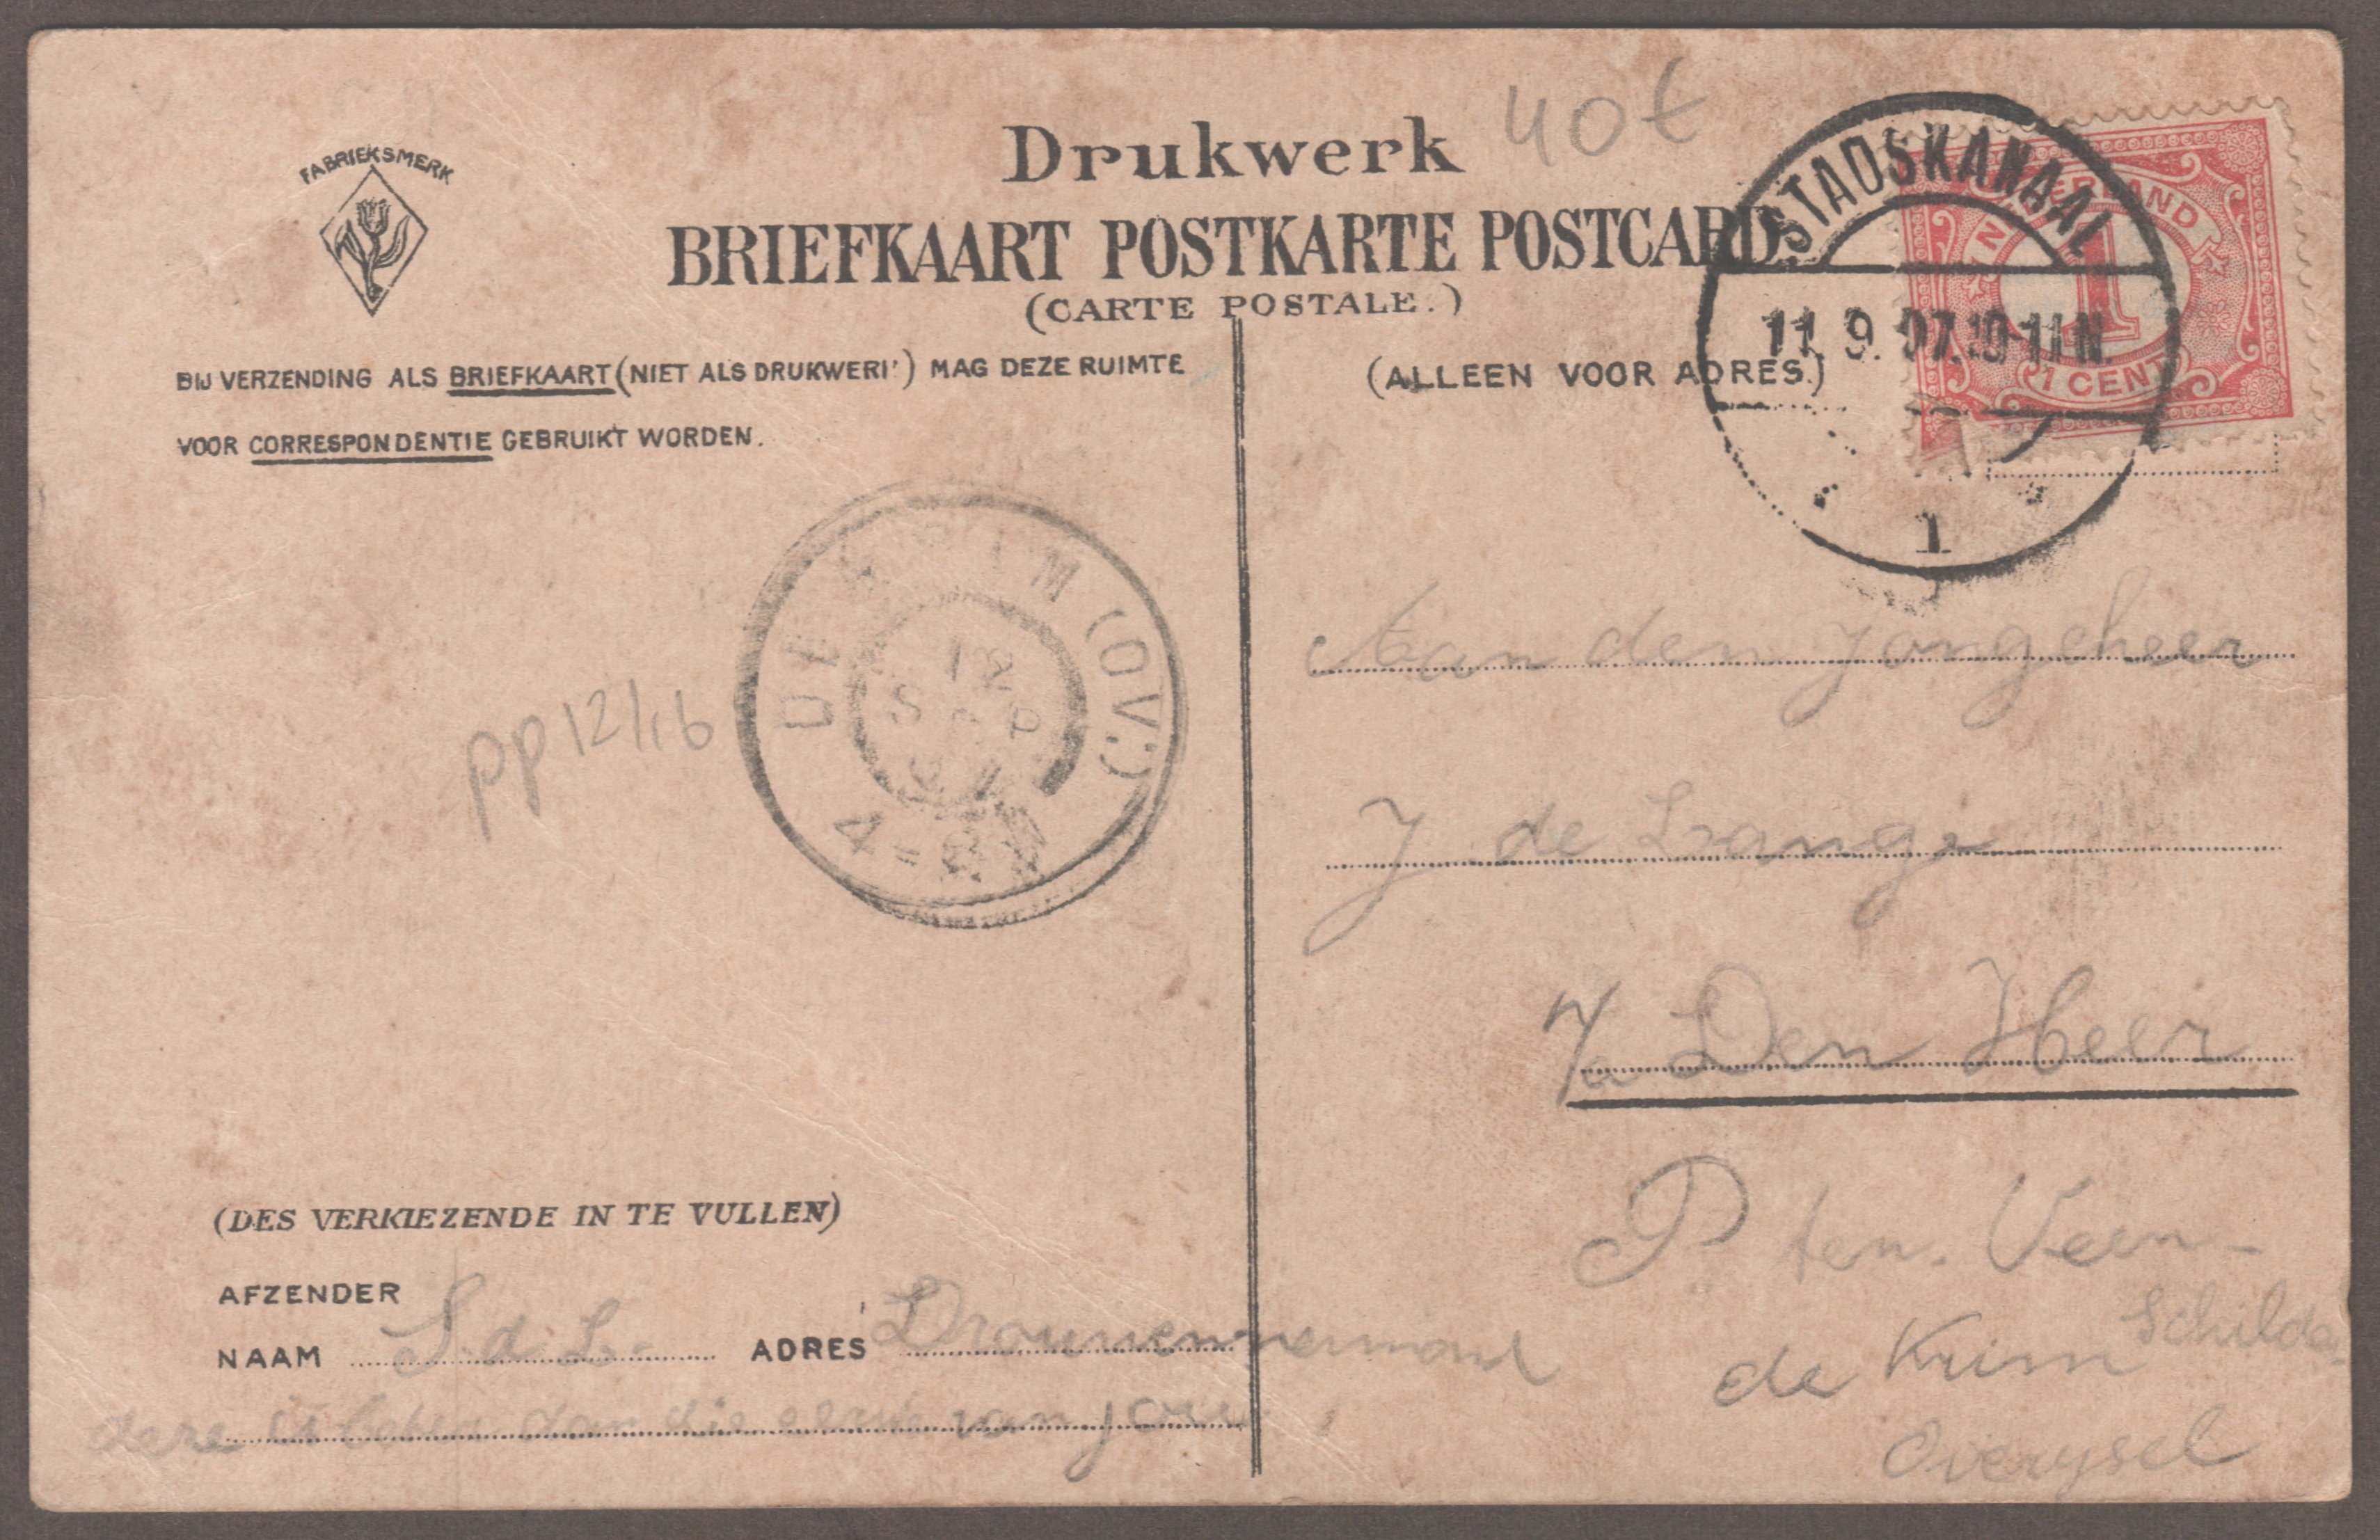 Drukwerk 40 €
FABRIEKSMERK
BRIEFKAART POSTKARTE POSTCARD
(CARTE POSTALE.)
STADSKANAAL
11.9.07.10-11N.
1
NEDERLAND
1
1 CENT
BIJ VERZENDING ALS BRIEFKAART (NIET ALS DRUKWERK) MAG DEZE RUIMTE
VOOR CORRESPONDENTIE GEBRUIKT WORDEN.
(ALLEEN VOOR ADRES.)
DE KRIM (OV.)
12
SEP
07
pp12/16
Aan den jongeheer
J de Lange
p/a Den Heer
P. ten. Veen-
Schilda
de Krim
Overysel
(DES VERKIEZENDE IN TE VULLEN)
AFZENDER
NAAM S. d. L.- ADRES Drouwenermond
deze is beter dan die eerst van jou